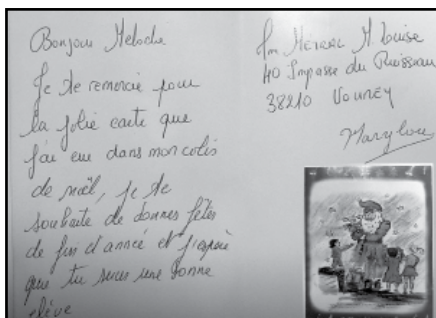 Bonjour Meloche
Je te remercie pour
la jolie carte que
j'ai eue dans mon colis
de noël, je te
souhaite de bonnes fêtes
de fin d'année et j'espère
que tu seras une bonne
élève
M. Louise
40 Impasse du Ruisseau
38210 Vourey
Marylou